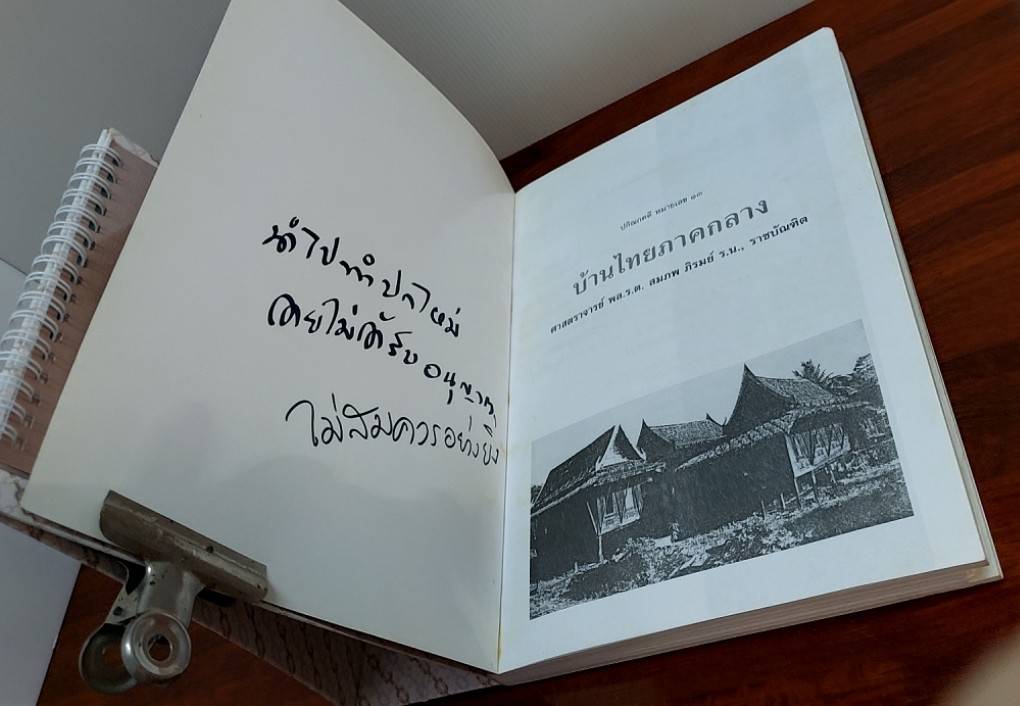 นำไปทำปกใหม่
โดยไม่ได้รับอนุญาต
ไม่สมควรอย่างยิ่ง
ปกิณกคดี หมายเลข ๑๓
บ้านไทยภาคกลาง
ศาสตราจารย์ พล.ร.ต. สมภพ ภิรมย์ ร.น., ราชบัณฑิต